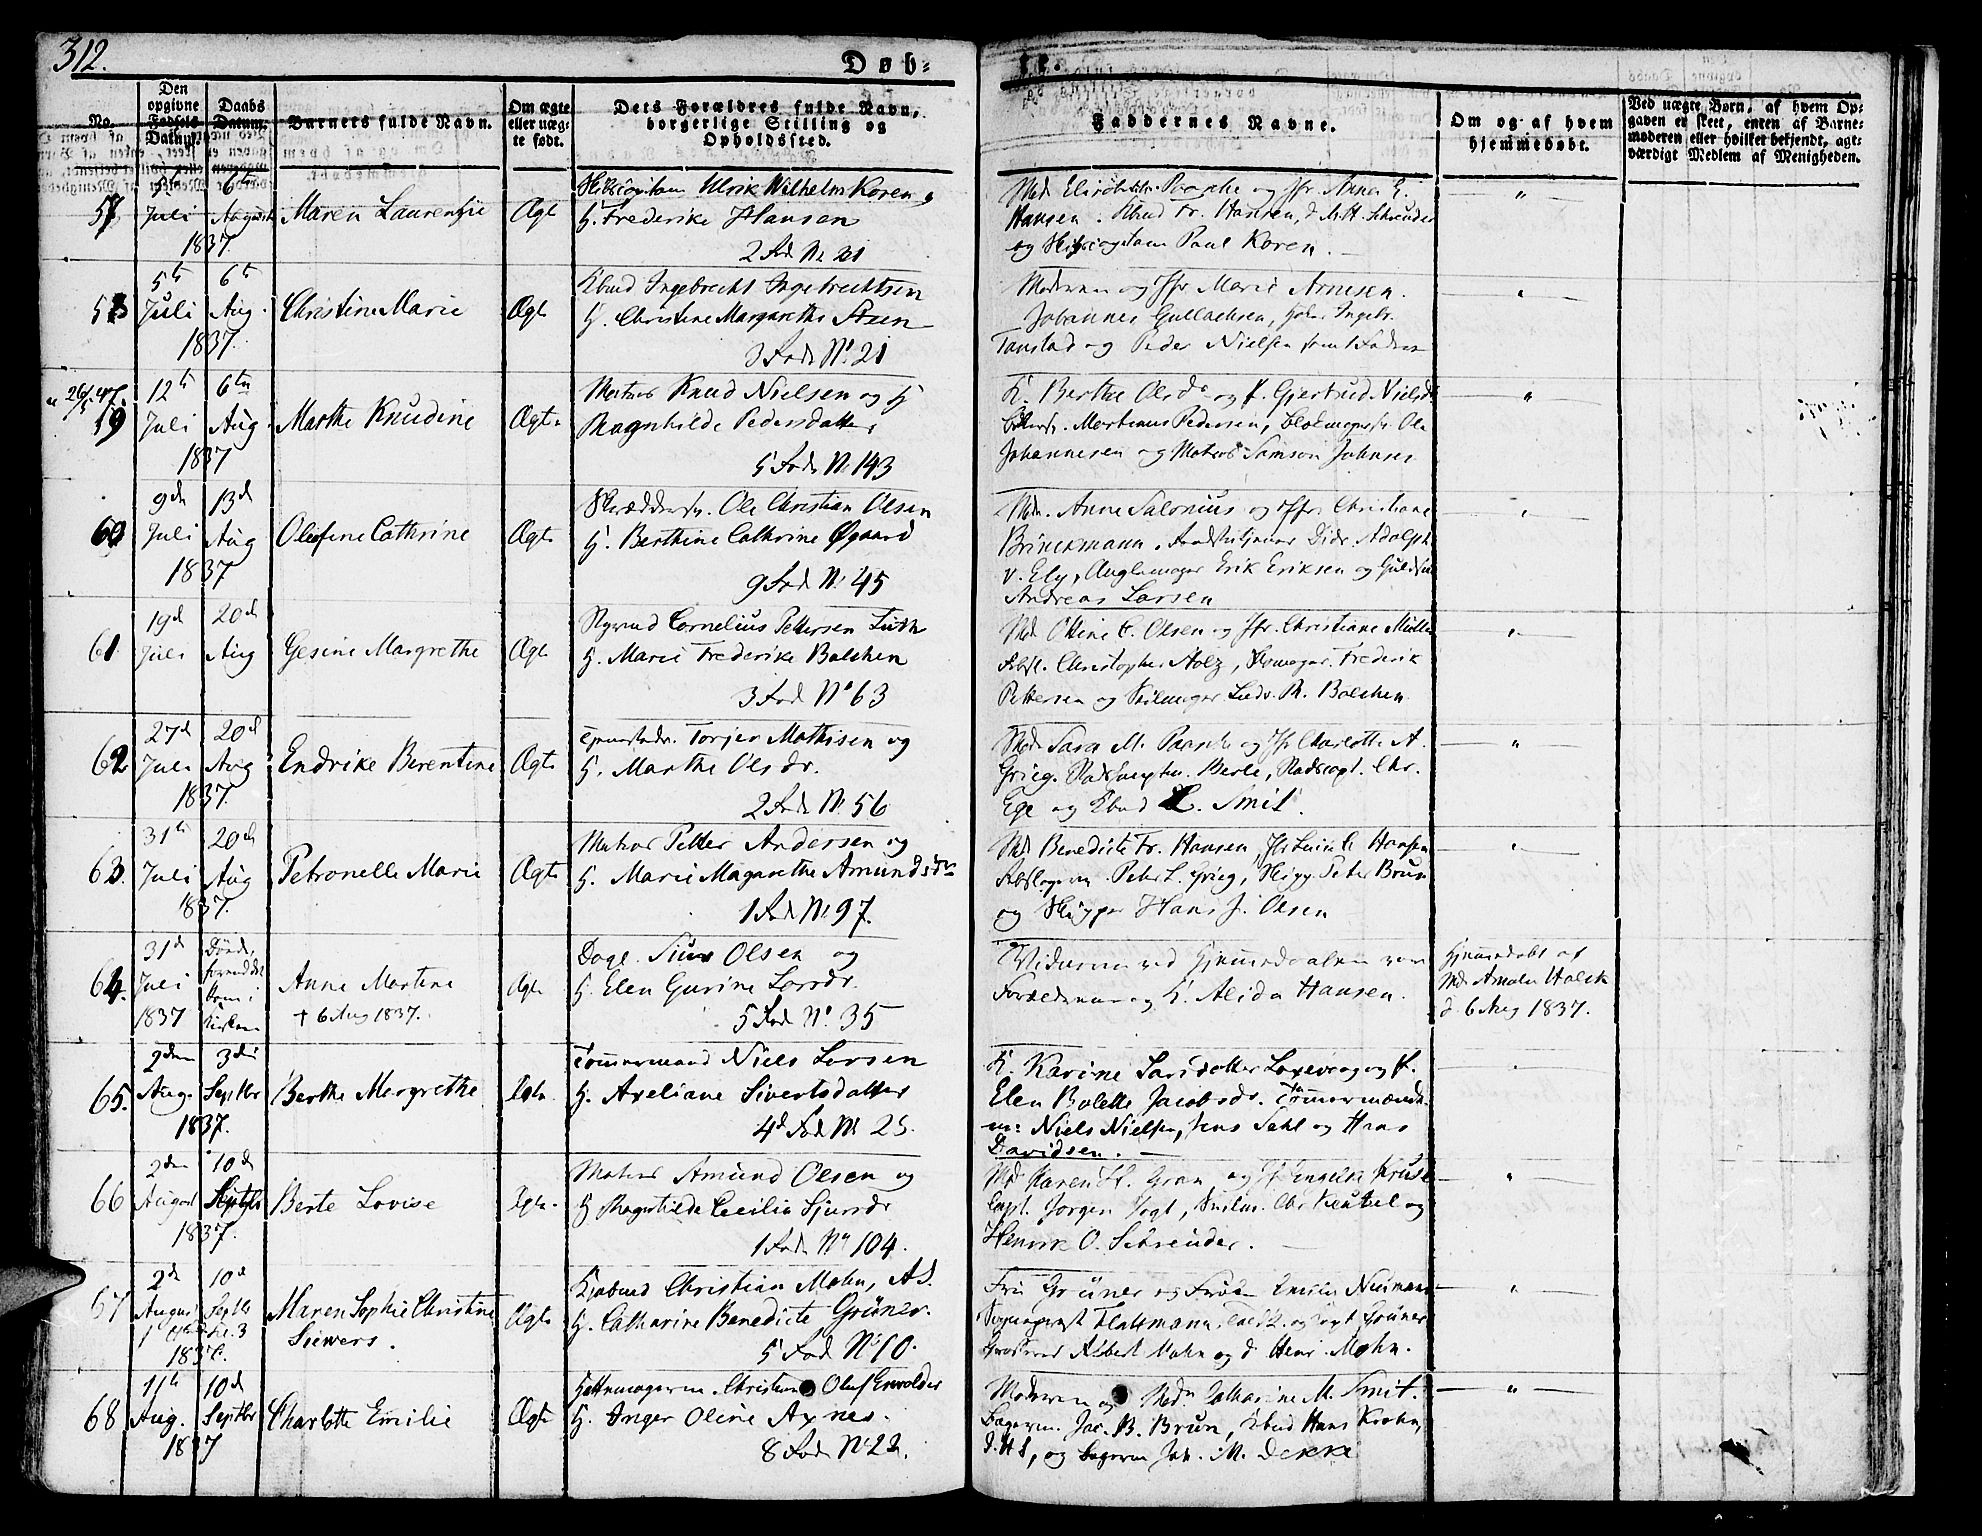 312.
Døb-
te.
No.
Den opgivne Fødsels Datum.
Daabs Datum.
Barnets fulde Navn.
Om ægte eller uægte født.
Dets Forældres fulde Navn, borgerlige Stilling og Opholdssted.
Faddernes Navne.
Om og af hvem hjemmedøbt.
Ved uægte Børn, af hvem Opgaven er skeet, enten af Barnemoderen eller hvilket bekjendt, agtværdigt Medlem af Menigheden.
57
Juli
August
1837
Maren Laurentzie
Ægt
Ulrik Wilhelm Koren,
H. Frederike Hansen
2 Fod No 21
Md. Elisabeth Paaske og Jfr. Anna E.
Hansen. Kbud Fr. Hansen, d M.H. Schreuder
og Skibscaptain Paul Koren.
58
5te
Juli
6te
Aug.
1837
Christine Marie
Ægt
Kbud Ingebrecht Ingebrechtsen
H. Christine Margarethe Steen
3 Fod No 21
Moderen og Jfr Marie Arnesen.
Johannes Gullachsen, Johan Ingebr.
Tanstad og Peder Nielsen samt Faderen
26/5 47.
59
12te
Juli
6te
Aug
1837
Marthe Knudine
Ægte
Matros Knud Nielsen og H
Magnhilde Pedersdatter
5 Fod No 143
K. Berthe Olsdr og P. Gjertrud Nielsdr
Martinus Pedersen, Blokmagersv. Ole
Johannesen og Matros Samson Johnsen
60
9de
Juli
13de
Aug
1837
Olufine Cathrine
Ægte
Skræddersv. Ole Christian Olsen
H. Berthine Cathrine Øgaard
9 Fod No 45
Md. Anne Salonius og Jfr. Christiane
Brinckmann. Didr. Adolph
v. Ely, Uhrmager Erik Eriksen og Guldsm
Andreas Larsen
61
19de
Juli
20de
Aug
Gesine Margrethe
Ægt
Cornelius Pettersen Luth
H. Marie Frederike Balchen
3 Fod No 63
Md Ottine C. Olsen og Jfr. Christiane Müller
Christopher Holz, Skomager. Frederik
Pettersen og Seilmager Ludv. R. Balchen
62
27de
Juli
20de
Aug
1837.
Endrike Berentine
Ægte
Torjer Mathisen og
H. Marthe Olsdr.
2 Fod No 56
Md Sara M. Paaske og Jfr Charlotte A.
Grieg. Berle, Chr.
Ege og Kbud L. Smit.
63.
31te
Juli
20de
Aug
1837.
Petronelle Marie
Ægte
Matros Petter Andersen og
H. Marie Magarethe Amundsdr
1 Fod No 97.
Md Benedicte Fr. Hansen, Hansen
Peter L. Grieg, Skipp. Peter Brun
og Skipper Hans J. Olsen
64.
31de
Juli
1837
Anne Martine
† 6 Aug 1837.
Ægte
Dagl. Siur Olsen og
H. Elen Gurine Larsdr.
5 Fod No. 35
Vidnerne ved Hjemmedaaben vare
Forældrene og K. Alida Hansen.
Hjemmedøbt af
Md. Amalia Halck
d. 6 Aug 1837.
65.
2den
Aug.
3die
Septbr
1837.
Berthe Mergrethe
Ægte
Tømmermand Niels Larsen
H. Axeliane Sivertsdatter
4de Fod No 25.
K. Karine Larsdatter Laxevaag og P.
Elen Bolette Jacobsdr. Tømmermænd-
ne: Niels Nielsen, Jens Dahl og Hans
Davidsen.
66
2den
August
10de
Septbr
1837.
Berte Lovise
Ægte
Matros Amund Olsen og
H Magnhilde Cecilia Sjursdr
1 Fod No 104.
Md Karen H. Gran og Jf Engelke Kruse
Capt. Jørgen Vogt, Chr. Keubel og
Henrik O. Schreuder.
67
2de
August
10de
Septbr
1837.
Maren Sophie Christine
Siewers.
Ægte
Kjøbmd Christian Mohn, A S.
H. Catharine Benedicte Grüner.
5 Fod No 10.
Fru Grüner og Frøk Emilie Neumann
Sogneprest Flottmann, Grüner
Albert Mohn og d Henr. Mohn.
68
11te
Aug.
10de
Septbr
1837
Charlotte Emilie
Ægte
Hattemagerm. Christian Oluf Enwolder
H. Inger Oline Axnes.
8 Fod No 22.
Moderen og Md. Catharine M. Smit.
Bagerm. Jac. B. Brun, Kbud Hans Krohn,
d. H S, og Bagerm Joh. M. Dekke